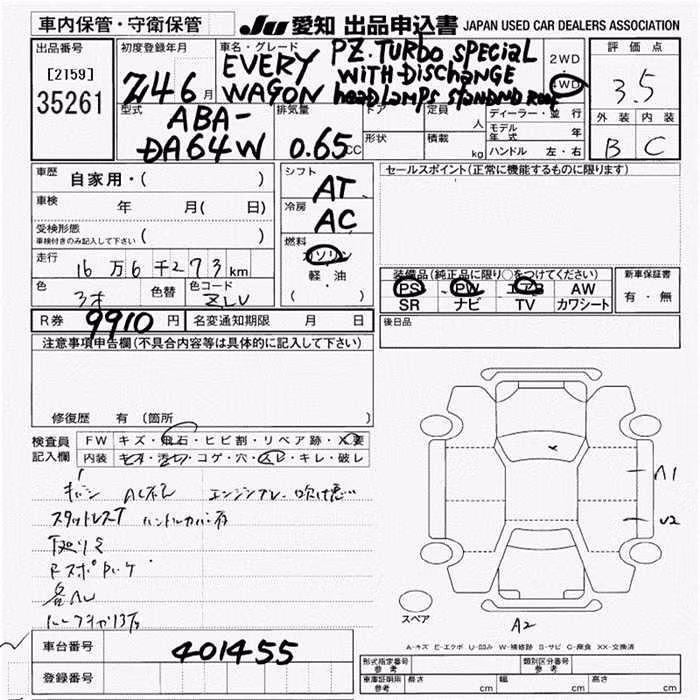 車内保管・守衛保管 JU 愛知 出品申込書 JAPAN USED CAR DEALERS ASSOCIATION
出品番号
[2159]
35261
初度登録年月
Z46月
車名・グレード
EVERY WAGON
PZ.TURBO SPECIAL
WITH DISCHANGE
headLAMPS
2WD
4WD
評価点
3.5
外装 内装
B C
型式
ABA-
DA64W
排気量
0.65CC
ドア
形状
定員 人
積載 kg
ディーラー・並行
モデル年式 年
ハンドル 左・右
車歴 自家用・( )
車検 年 月( 日)
受検形態
車検付きのみ記入して下さい ( )
走行 16万6千273km
色 色替 色コード
ZLU
シフト
AT
冷房
AC
燃料
ガソリン
軽・油
( )
セールスポイント(正常に機能するものに限ります)
装備品(純正品に限り○をつけてください)
PS PW エアB AW
SR ナビ TV カワシート
新車保証書
有・無
R券 9910円 名変通知期限 月 日
後日品
注意事項申告欄(不具合内容等は具体的に記入して下さい)
修復歴 有 (箇所 )
検査員
記入欄
FW キズ・飛石・ヒビ割・リペア跡・X要
内装 キズ・汚れ・コゲ・穴・スレ・キレ・破レ
A1
U2
A2
スペア
A-キズ E-エクボ U-凹み W-補修跡 S-サビ C-腐食 XX-交換済
車台番号 401455
登録番号
形式指定番号 参考
類別区分番号 参考
車庫証明用 参考 長さ cm 幅 cm 高さ cm